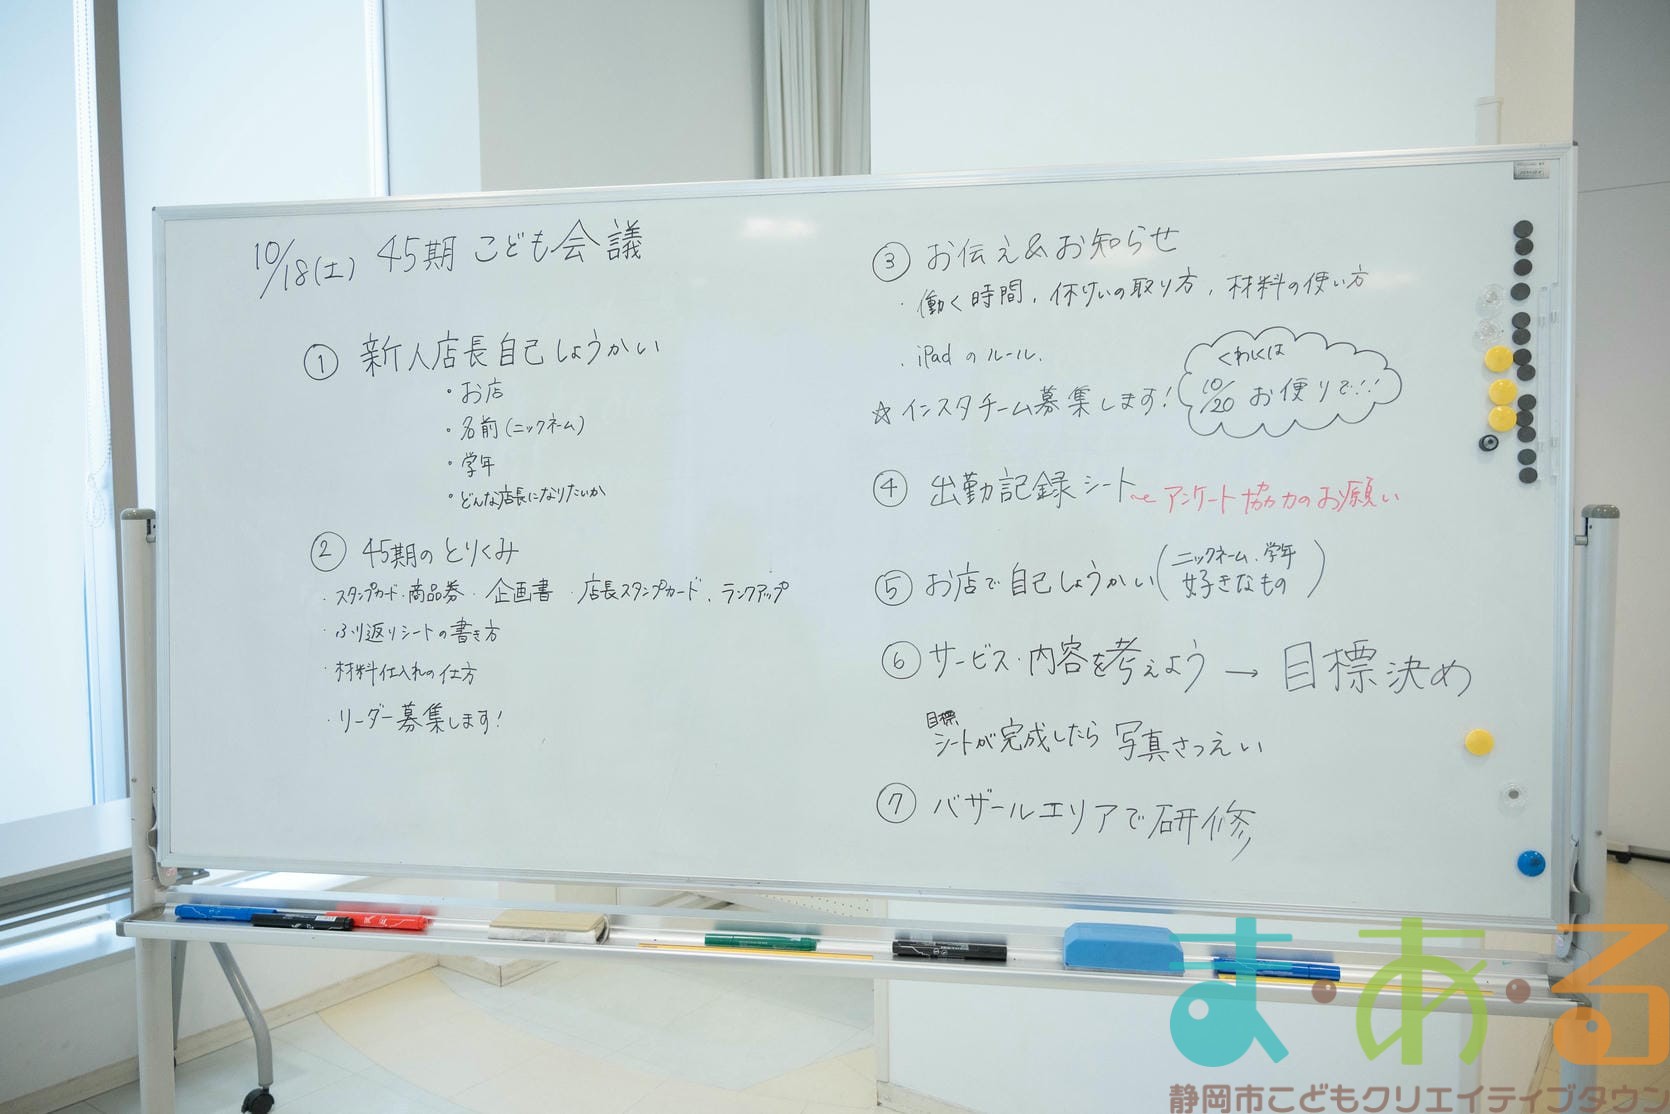 10/18(土) 45期 こども会議
① 新人店長自己しょうかい
・お店
・名前(ニックネーム)
・学年
・どんな店長になりたいか
② 45期のとりくみ
・スタンプカード・商品券・企画書・店長スタンプカード、ランクアップ
・ふり返りシートの書き方
・材料仕入れの仕方
・リーダー募集します!
③ お伝え&お知らせ
・働く時間、休けいの取り方、材料の使い方
・iPadのルール、
☆インスタチーム募集します!
くわしくは
10/20 お便りで!!
④ 出勤記録シート〜アンケート協力のお願い
⑤ お店で自己しょうかい(ニックネーム、学年
好きなもの)
⑥ サービス・内容を考えよう→目標決め
目標
シートが完成したら写真さつえい
⑦ バザールエリアで研修
ま・あ・る
静岡市こどもクリエイティブタウン